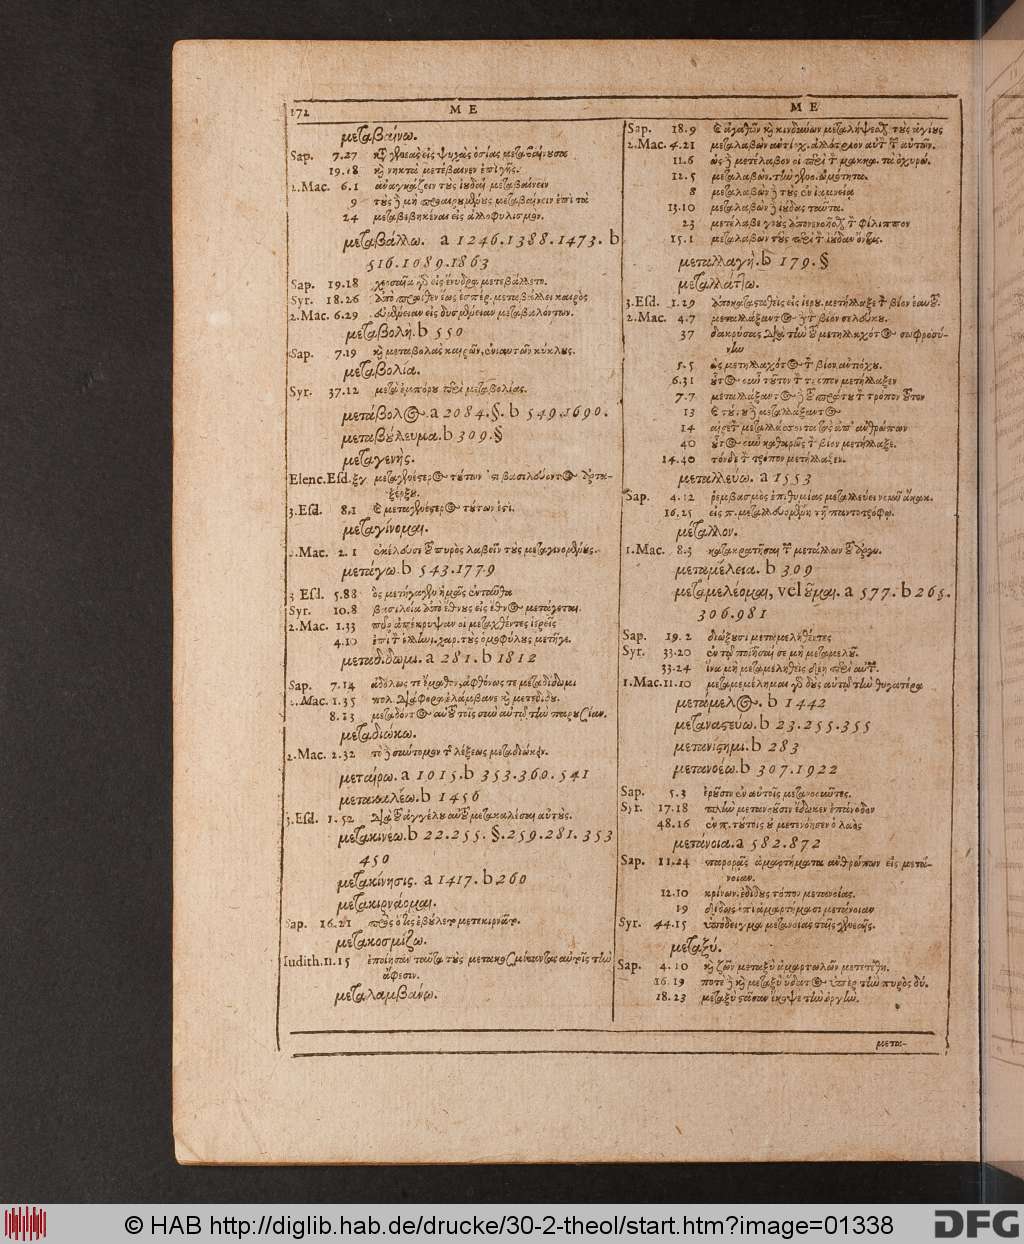 172 M E M E
μεταβαίνω.
Sap. 7.27 καὶ γενεὰς εἰς ψυχὰς ὁσίας μεταβαίνουσα
19.18 καὶ νηκτὰ μετέβαινεν ἐπὶ γῆς.
2.Mac. 6.1 ἀναγκάζειν τοὺς ἰουδαί. μεταβαίνειν
9 τοὺς δὲ μὴ προαιρουμένους μεταβαίνειν ἐπὶ τὰ
24 μεταβεβηκέναι εἰς ἀλλοφυλισμόν.
μεταβάλλω. a 1246.1388.1473. b
516.1089.1863
Sap. 19.18 χερσαῖα γὰρ εἰς ἔνυδρα μετεβάλλετο.
Syr. 18.26 ἀπὸ πρωίθεν ἕως ἑσπέρ. μεταβάλλει καιρὸς
2.Mac. 6.29 εὐμένειαν εἰς δυσμένειαν μεταβαλόντων.
μεταβολή. b 550
Sap. 7.19 καὶ μεταβολὰς καιρῶν, ἐνιαυτῶν κύκλους.
μεταβολία.
Syr. 37.12 μετὰ ἐμπόρου περὶ μεταβολίας.
μετάβολος. a 2084.§. b 549.1690.
μεταβούλευμα. b 309.§
μεταγενής.
Elenc.Esd. ξγ μεταγενέστερος τούτων ἐπὶ βασιλεύοντος ἀρτα-
ξέρξου.
3.Esd. 8.1 καὶ μεταγενέστερος τούτων ἐστί.
μεταγίνομαι.
2.Mac. 2.1 ἐκέλευσε τοῦ πυρὸς λαβεῖν τοὺς μεταγινομένους.
μετάγω. b 543.1779
3 Esd. 5.88 ὃς μετήγαγεν ἡμᾶς ἐνταῦθα
Syr. 10.8 βασιλεία ἀπὸ ἔθνους εἰς ἔθνος μετάγεται
2.Mac. 1.33 πῦρ ἀπέκρυψαν οἱ μεταχθέντες ἱερεῖς
4.10 ἐπὶ τὸν ἑλλων. χαρ. τοὺς ὁμοφύλους μετῆγε.
μεταδίδωμι. a 281. b 1812
Sap. 7.14 ἀδόλως τε ἔμαθον, ἀφθόνως τε μεταδίδωμι
2.Mac. 1.35 πολ. διάφορα ἐλάμβανε καὶ μετεδίδου.
8.13 μεταδόντος αὐτοῦ τοῖς σὺν αὐτῷ τὴν παρουσίαν.
μεταδιώκω.
2.Mac. 2.32 τὸ δὲ σύντομον τῆς λέξεως μεταδιώκειν.
μεταίρω. a 1015. b 353.360.541
μετακαλέω. b 1456
3.Esd. 1.52 διὰ τοῦ ἀγγέλου αὐτοῦ μετακαλέσαι αὐτούς.
μετακινέω. b 22.255. §.259.281.353
450
μετακίνησις. a 1417. b 260
μετακιρνάομαι.
Sap. 16.21 πρὸς ὅ τις ἐβούλετο μετεκιρνᾶτο.
μετακοσμίζω.
Iudith. 11.15 ἐποίησαν ταῦτα τοὺς μετακοσμίσαντας αὐτοῖς τὴν
ἄφεσιν.
μεταλαμβάνω.
Sap. 18.9 καὶ ἀγαθῶν καὶ κινδύνων μεταλήψεσθαι τοὺς ἁγίους
2.Mac. 4.21 μεταλαβὼν ἀντίοχ. ἀλλότριον αὐτὸν τῶν αὐτῶν.
11.6 ὡς δὲ μετέλαβον οἱ περὶ τὸν μακκα. τὰ ὀχυρώ.
12.5 μεταλαβὼν. τὴν γενο. ὠμότητα.
8 μεταλαβὼν δὲ τοὺς ἐν ἰαμνείᾳ
13.10 μεταλαβὼν δὲ ἰούδας ταῦτα.
23 μετέλαβε γοὺς ἀπονενοῆσθαι τὸν φίλιππον
15.1 μεταλαβὼν τοὺς περὶ τὸν ἰούδαν ὄντας.
μεταλλαγή. b 179.§
μεταλλάττω.
3.Esd. 1.29 ἀποκατασταθεὶς εἰς ἱερου. μετήλλαξε τὸν βίον ἑαυτοῦ.
2.Mac. 4.7 μεταλλάξαντος δὲ τὸν βίον σελεύκου.
37 δακρύσας διὰ τὴν τοῦ μετηλλαχότος σωφροσύ-
νην
5.5 ὡς μετηλλαχότος τὸν βίον ἀντιόχου.
6.31 οὗτος οὖν τοῦτον τὸν τρόπον μετήλλαξεν
7.7 μεταλλάξαντος δὲ τοῦ πρώτου τὸν τρόπον τοῦτον
13 καὶ τούτου δὲ μεταλλάξαντος
14 αἱρετὸν μεταλλάσσοντας ἀπ' ἀνθρώπων
40 οὗτος οὖν καθαρῶς τὸν βίον μετήλλαξε.
14.40 τόνδε τὸν τρόπον μετήλλαξεν.
μεταλλεύω. a 1553
Sap. 4.12 ῥεμβασμὸς ἐπιθυμίας μεταλλεύει νοῦν ἄκακ.
16.25 εἰς π. μεταλλευομένη τῇ παντοτρόφῳ.
μέταλλον.
1.Mac. 8.3 κατακρατῆσαι τῶν μετάλλων τοῦ ἀργυ.
μεταμέλεια. b 309
μεταμελέομαι, vel οῦμαι. a 577. b 265.
306.981
Sap. 19.2 διώξουσι μεταμεληθέντες
Syr. 33.20 ἐν τῷ ποιῆσαί σε μὴ μεταμελοῦ.
33.24 ἵνα μὴ μεταμεληθεὶς δέῃ περὶ αὐτῶν.
1.Mac. 11.10 μεταμεμέλημαι γὰρ δοὺς αὐτῷ τὴν θυγατέρα
μετάμελος. b 1442
μεταναστεύω. b 23.255.355
μετανίστημι. b 283
μετανοέω. b 307.1922
Sap. 5.3 ἐροῦσιν ἐν αὐτοῖς μετανοοῦντες.
Syr. 17.18 πλὴν μετανοοῦσιν ἔδωκεν ἐπάνοδον
48.16 ἐν π. τούτοις οὐ μετενόησεν ὁ λαὸς
μετάνοια. a 582.872
Sap. 11.24 παρορᾷς ἁμαρτήματα ἀνθρώπων εἰς μετά-
νοιαν.
12.10 κρίνων. ἐδίδους τόπον μετανοίας.
19 δίδως ἐπὶ ἁμαρτήμασι μετάνοιαν
Syr. 44.15 ὑπόδειγμα μετανοίας ταῖς γενεαῖς.
μεταξύ.
Sap. 4.10 καὶ ζῶν μεταξὺ ἁμαρτωλῶν μετετέθη.
16.19 ποτὲ δὲ καὶ μεταξὺ ὕδατος ὑπὲρ τὴν πυρὸς δύ.
18.23 μεταξὺ στὰς ἀνέκοψε τὴν ὀργήν.
μετα-
© HAB http://diglib.hab.de/drucke/30-2-theol/start.htm?image=01338
DFG